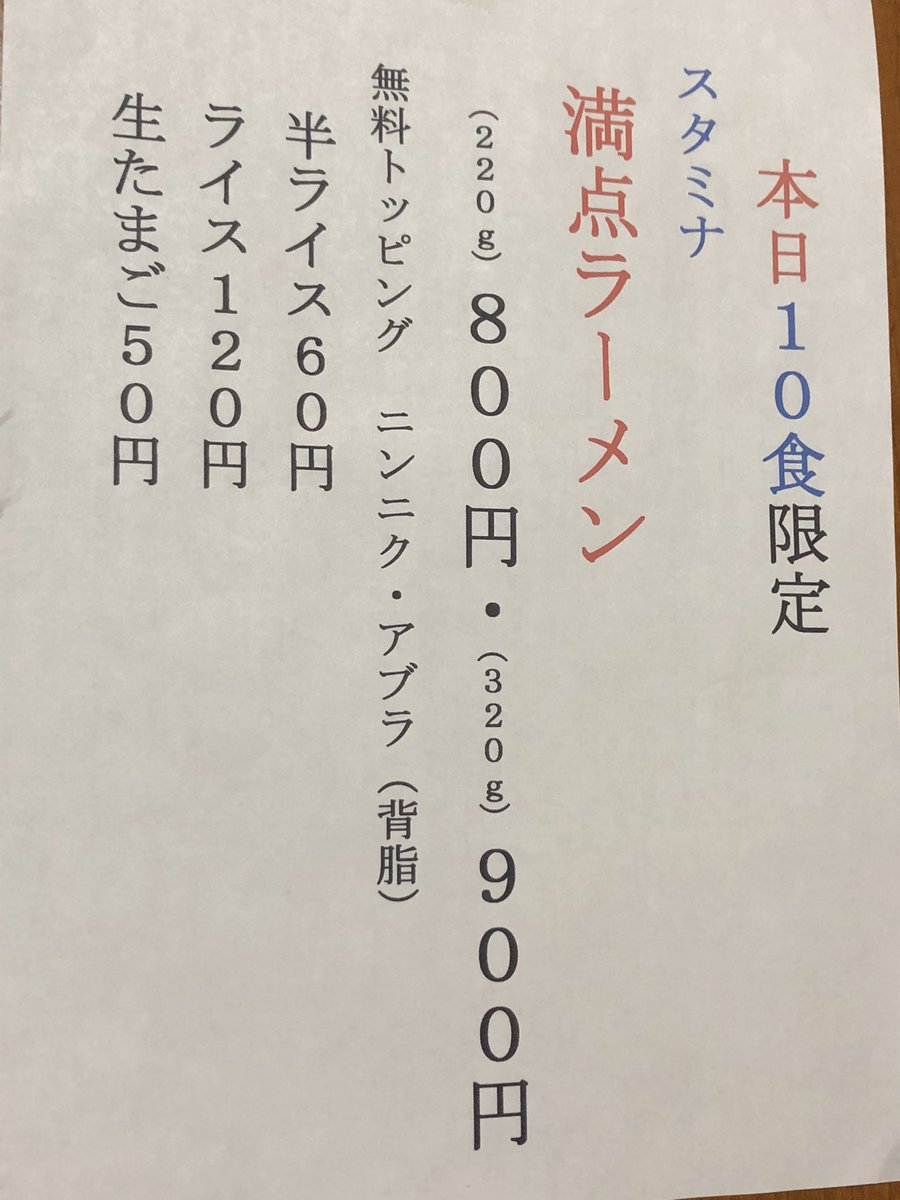 本日１０食限定
スタミナ
満点ラーメン
（２２０ｇ）８００円・（３２０ｇ）９００円
無料トッピング　ニンニク・アブラ（背脂）
半ライス６０円
ライス１２０円
生たまご５０円